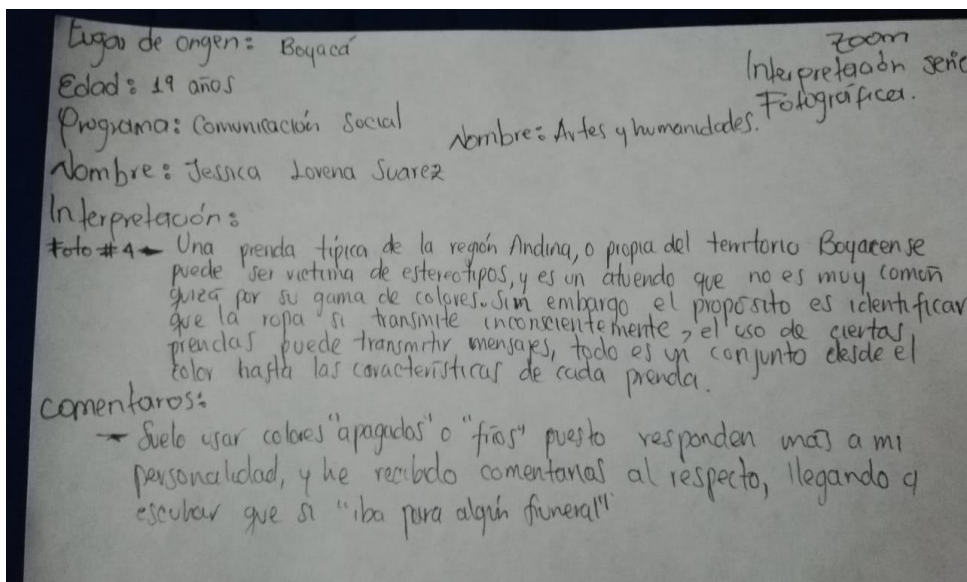 Lugar de origen: Boyacá
Zoom
Interpretación serie
Fotográfica.
Edad: 19 años
Programa: Comunicación Social
Nombre: Artes y humanidades.
Nombre: Jessica Lorena Suarez
Interpretación:
Foto #4 - Una prenda típica de la región Andina, o propia del territorio Boyacense
puede ser victima de estereotipos, y es un atuendo que no es muy común
quizá por su gama de colores. Sim embargo el propósito es identificar
que la ropa si transmite inconscientemente, el uso de ciertas
prendas puede transmitir mensajes, todo es un conjunto desde el
color hasta las características de cada prenda.
comentaros:
- Suelo usar colores "apagados" o "fríos" puesto responden más a mi
personalidad, y he recibido comentarios al respecto, llegando a
escuhar que si "iba para algún funeral"